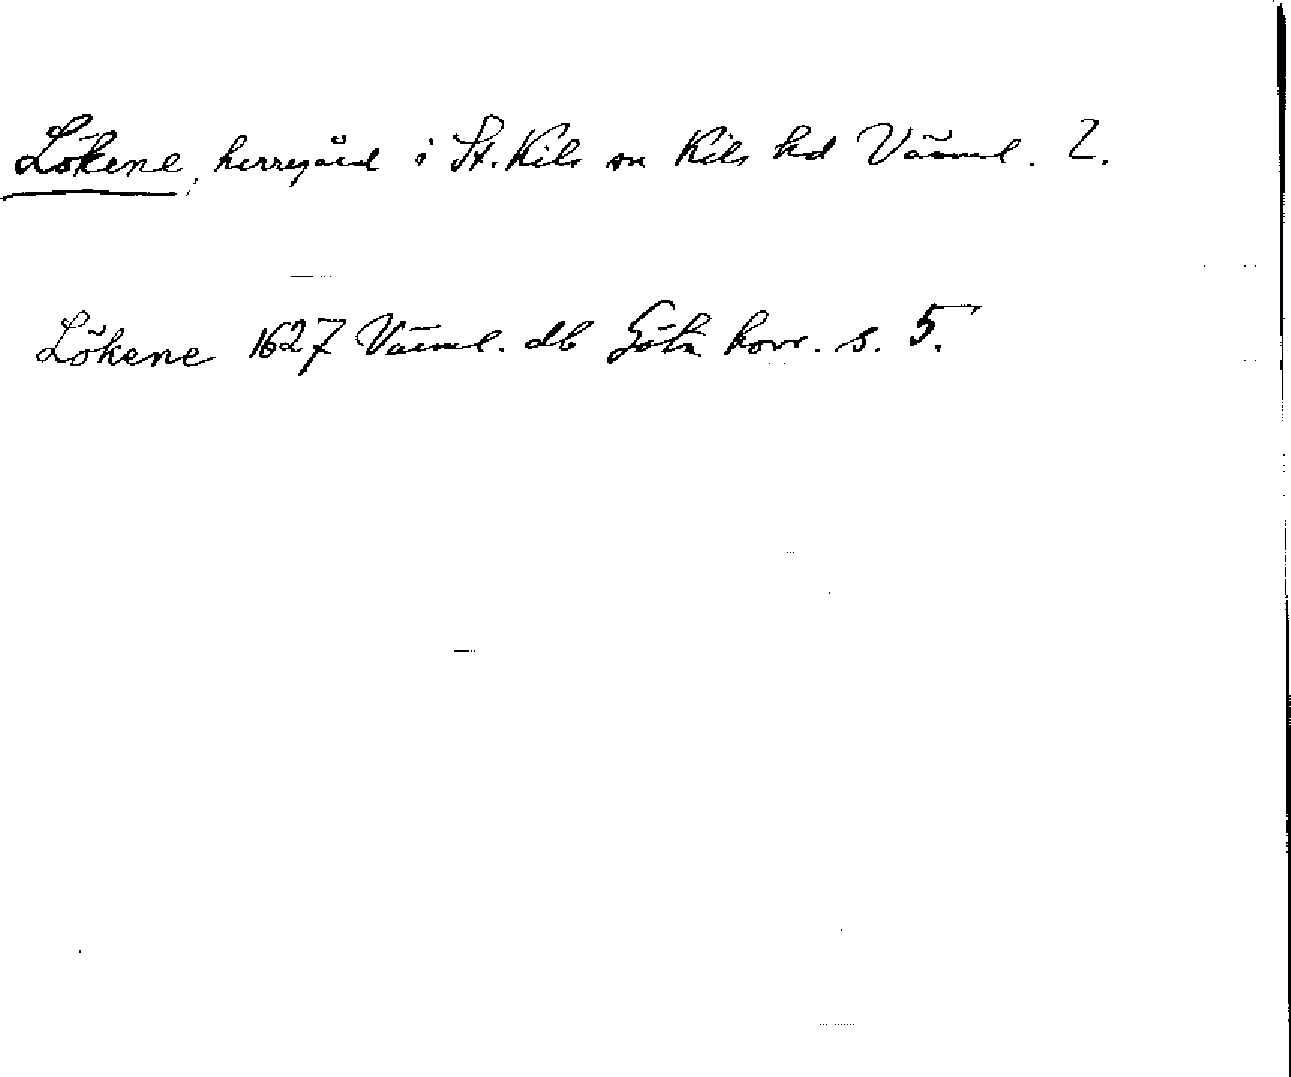 Lökene, herregård i St. Kils sn Kils hd Värml. l.
Lökene 1627 Värml. db Göta hovr. s. 5.